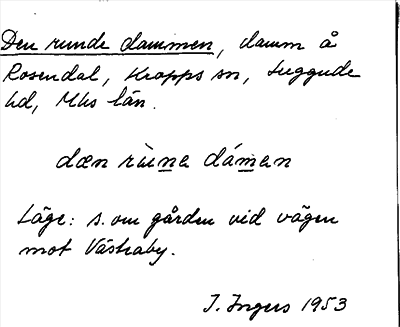 Den runde dammen, damm å
Rosendal, Kropps sn, Luggude
hd, Mhs län.
dæn rùna dáman
Läge: s. om gården vid vägen
mot Västraby.
I. Ingers 1953